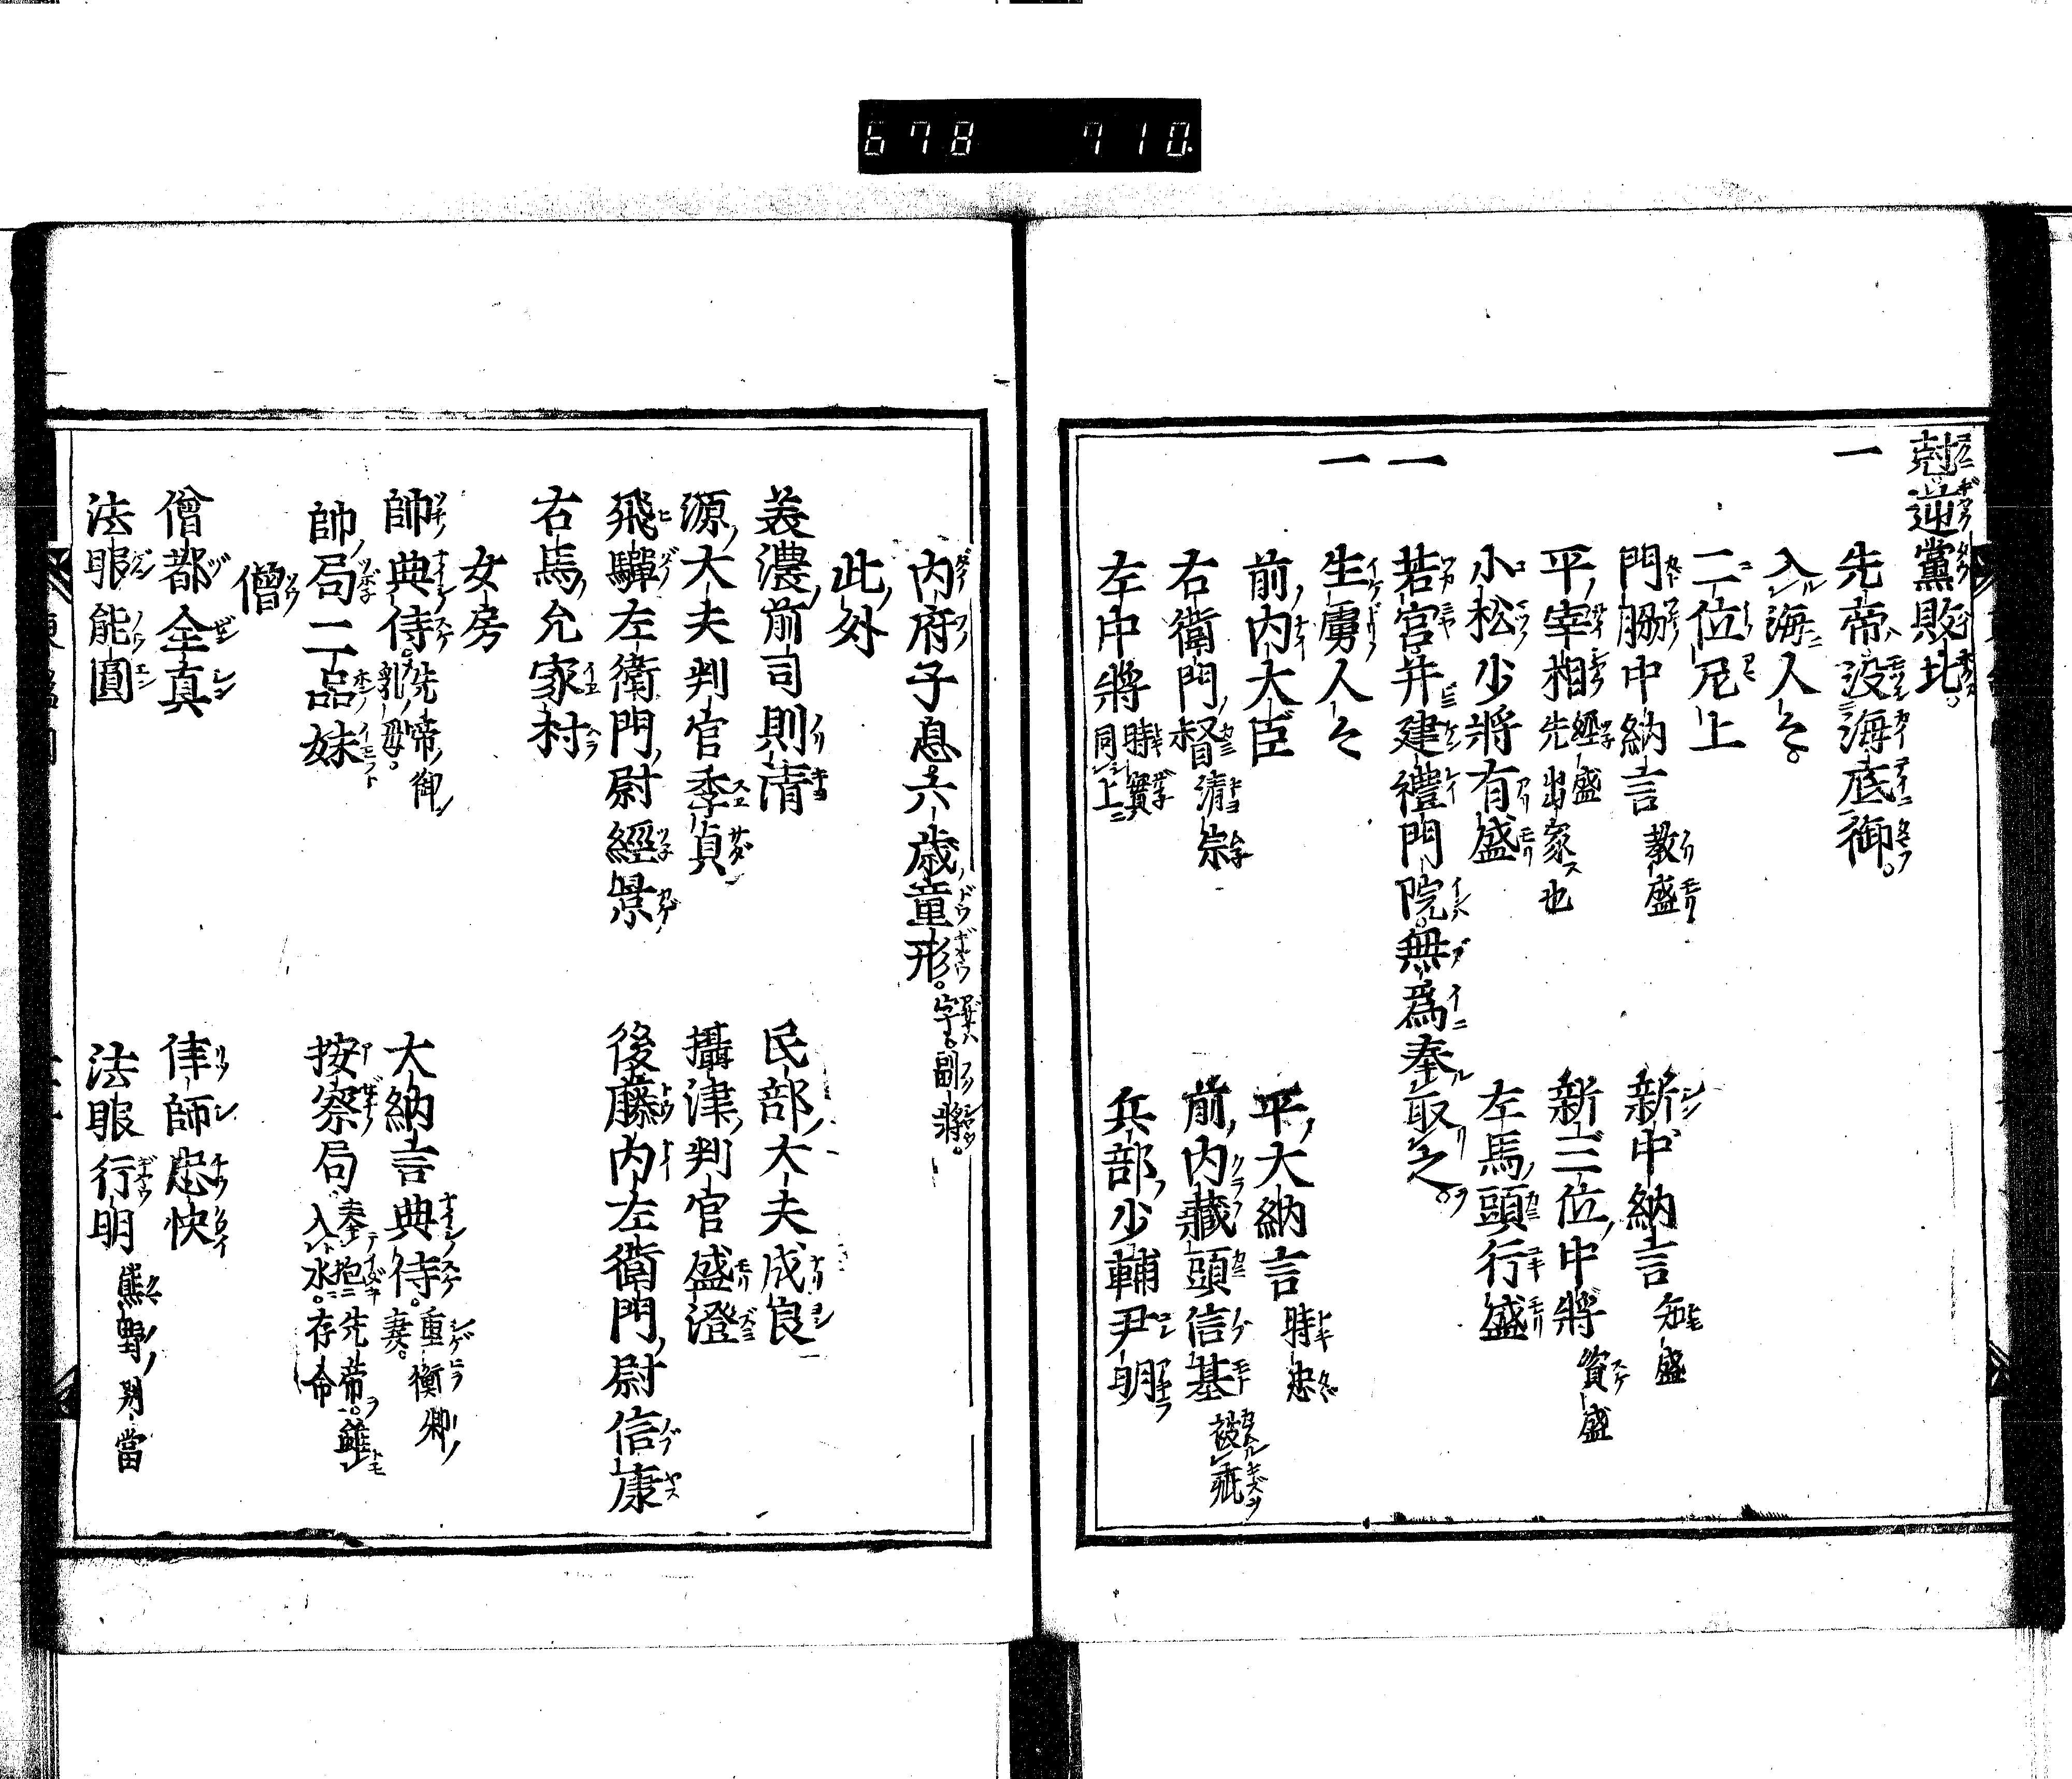 678 710.
尅逆黨敗北。
一
先帝没海底御。
入海人々。
二位尼上
門脇中納言 教盛
新中納言 知盛
平宰相 經盛 先出家也
新三位中將 資盛
小松少將有盛
左馬頭行盛
一
若宮并建禮門院。無爲奉取之。
一
生虜人々
前内大臣
平大納言 時忠
右衛門督 清宗
前内藏頭信基 被疵
左中將 時實 同上
兵部少輔尹明
内府子息六歳童形。字副將。
此外
美濃前司則清
民部大夫成良
源大夫判官季貞
攝津判官盛澄
飛驒左衛門尉經景
後藤内左衛門尉信康
右馬允家村
女房
帥典侍。先帝御乳母。
大納言典侍。重衡卿妻。
帥局二品妹
按察局 奉抱先帝。雖入水。存命
僧
僧都全真
律師忠快
法眼能圓
法眼行明 熊野別當